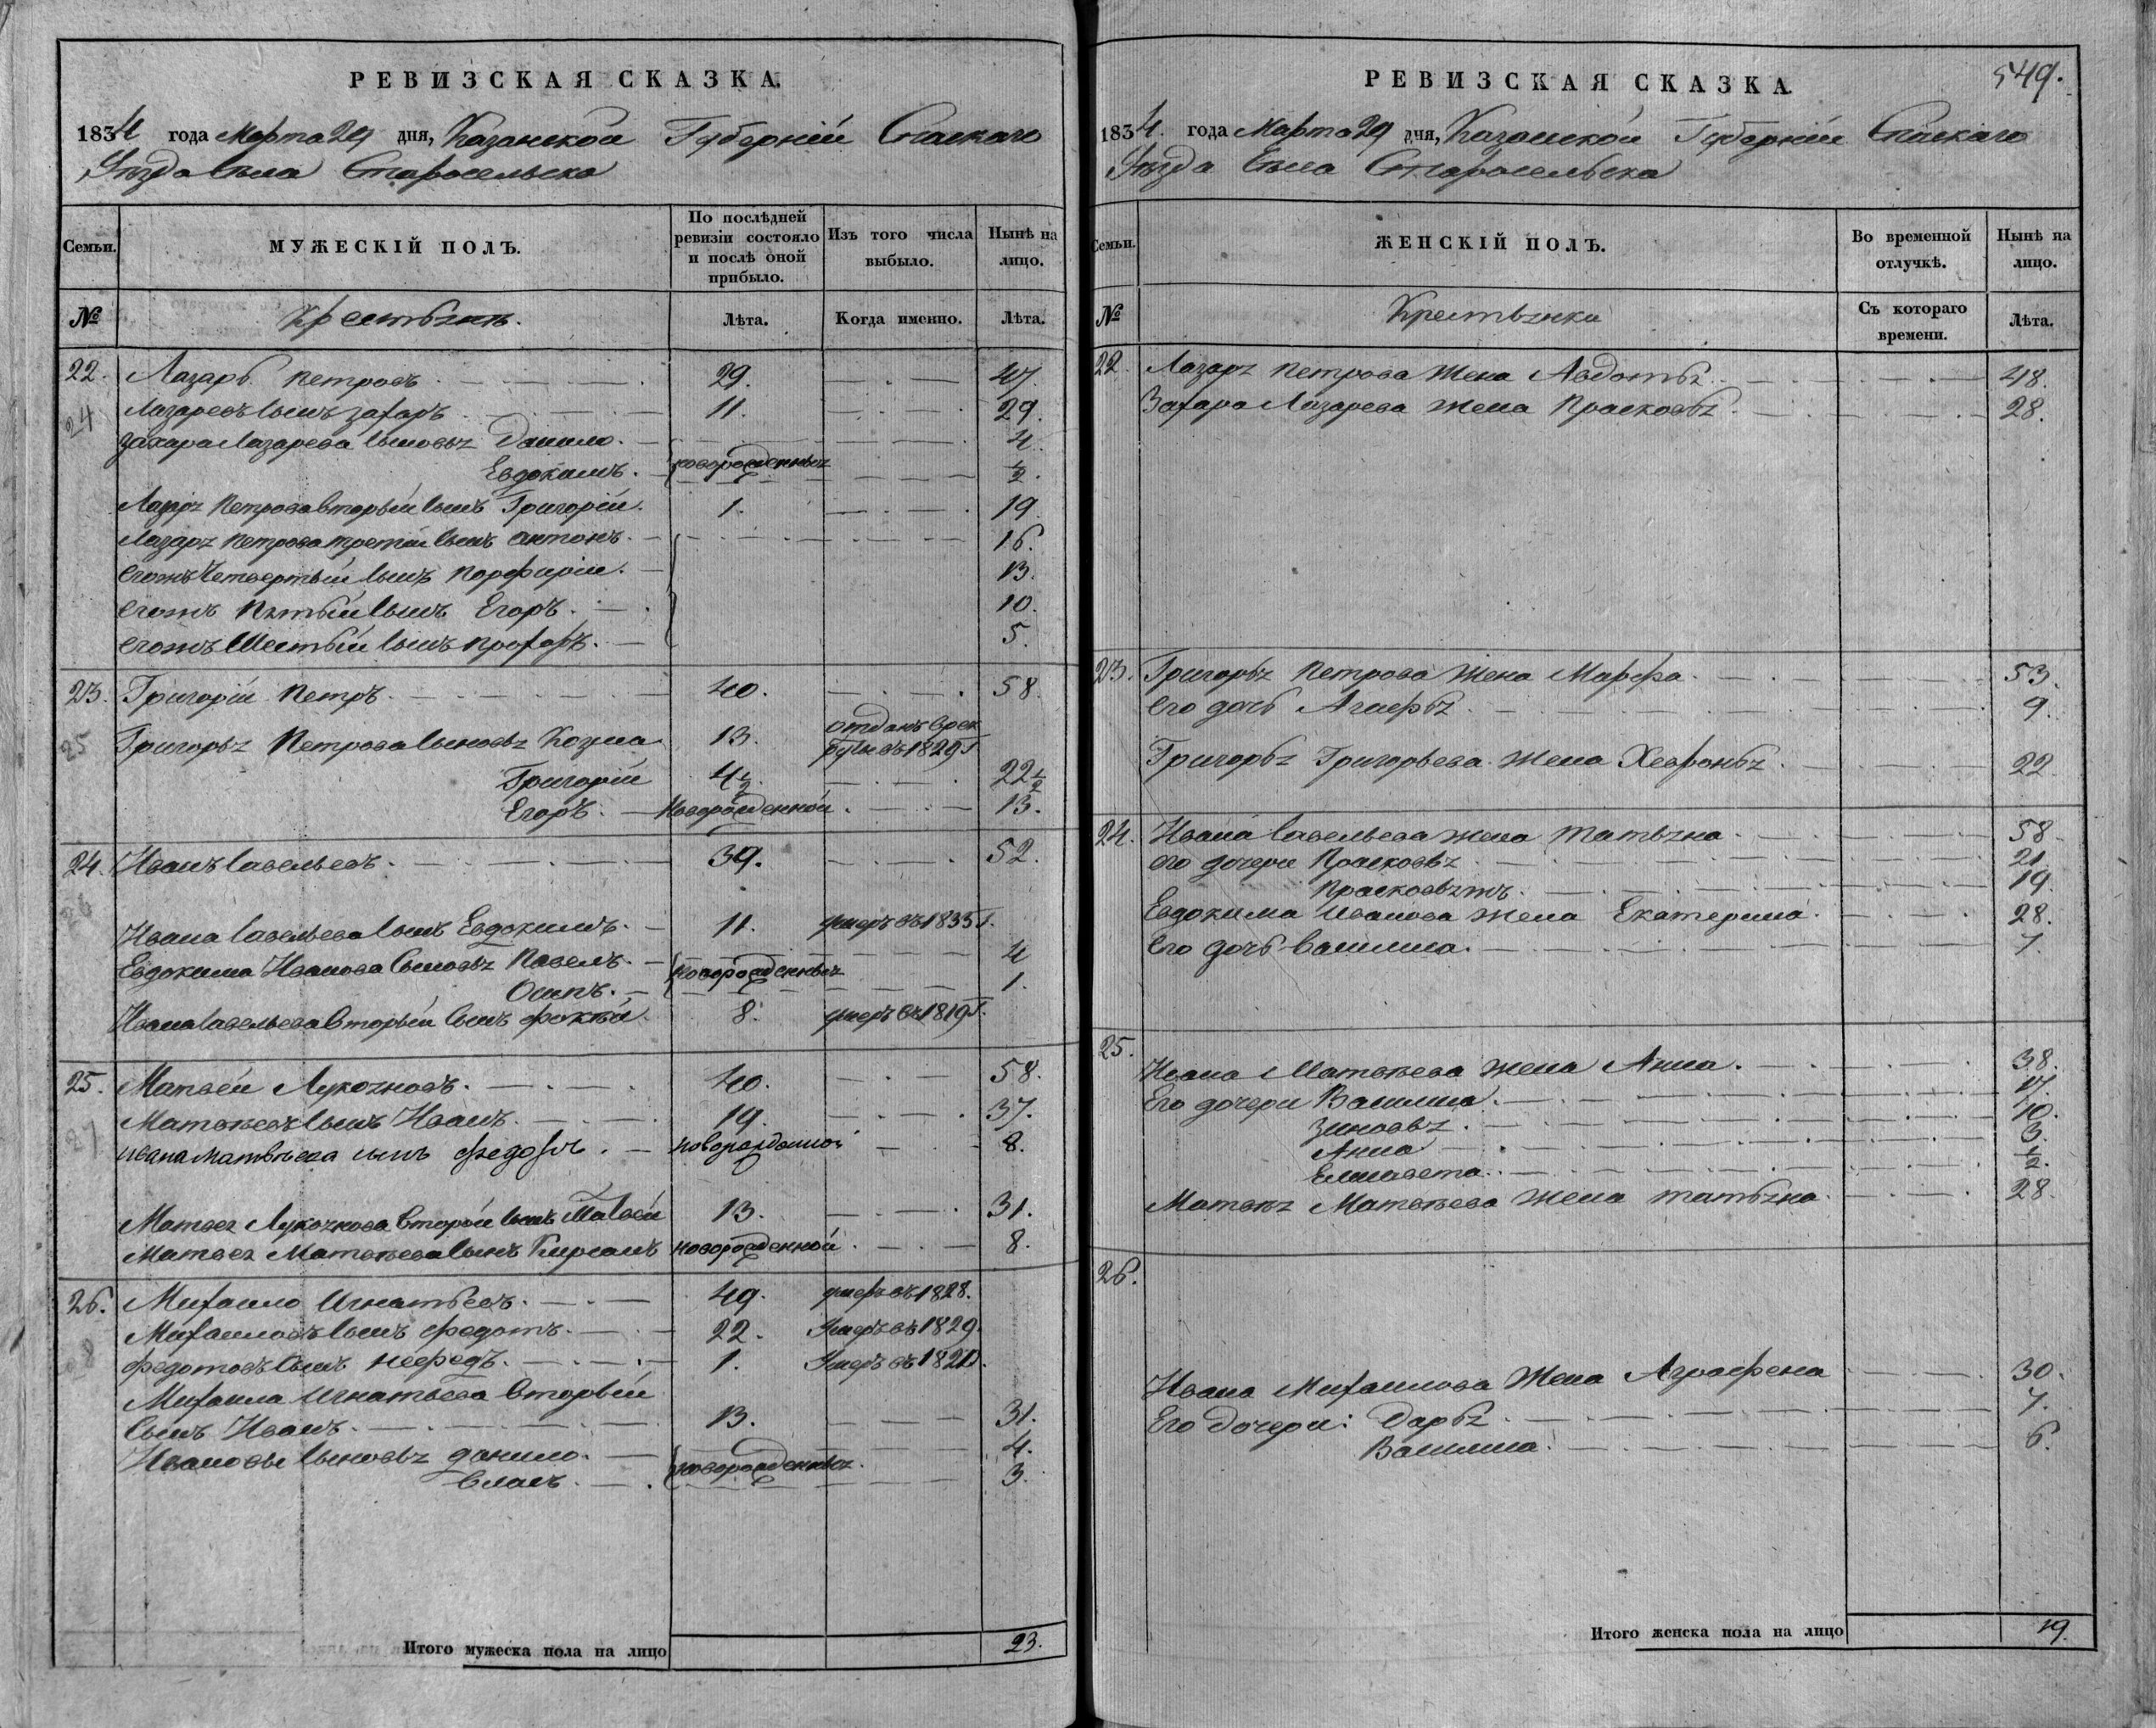 РЕВИЗСКАЯ СКАЗКА.
1834 года Марта 29 дня, Казанской Губернiи Спаскаго
Уѣзда Села Старосельска
Семьи.
МУЖЕСКІЙ ПОЛЪ.
По послѣдней ревизіи состояло и послѣ оной прибыло.
Изъ того числа выбыло.
Нынѣ на лицо.
№
Крестьянъ.
Лѣта.
Когда именно.
Лѣта.
22. Лазарь Петровъ 29. 47.
24 Лазаревъ сынъ Захаръ 11. 29.
Захара Лазарева сыновья Данило. 4.
Евдокимъ. новорожденныя ½.
Лазаря Петрова вторый сынъ Григорій. 1. 19.
Лазаря Петрова третій сынъ Антонъ. 16.
Егожъ Четвертый сынъ Порфирій. 13.
Егожъ Пятый сынъ Егоръ. 10.
Егожъ Шестый сынъ Прохоръ. 5.
23. Григорій Петръ. 40. 58.
25 Григорья Петрова сыновья Козма 13. отданъ в рек
руты въ 1829 г.
Григорій 4½. 22½
Егоръ. новорожденной. 13.
24. Иванъ Савельевъ. 39. 52.
26
Ивана Савельева сынъ Евдокимъ. 11. умеръ въ 1833 г.
Евдокима Иванова сыновья Павелъ. 4
Осипъ. новорожденныя 1.
Ивана Савельева вторый сынъ Фокѣй. 8. умеръ въ 1819 г.
25. Матвей Лукояновъ. 40. 58.
Матвѣевъ сынъ Иванъ. 19. 37.
27 Ивана Матвѣева сынъ Федоръ. новорожденной 8.
Матвея Лукоянова второй сынъ Матвей 13. 31.
Матвея Матвѣева сынъ Кирсанъ новорожденной. 8.
26. Михаило Игнатьевъ. 49. умеръ въ 1828.
Михаиловъ сынъ Федотъ. 22. Умеръ въ 1829.
28 Федотовъ сынъ Нефедъ. 1. Умеръ въ 1821.
Михаила Игнатьева вторый
сынъ Иванъ. 13. 31.
Ивановы сыновья Данило. 4.
Власъ. новорожденныя. 3.
Итого мужеска пола на лицо 23.
549.
РЕВИЗСКАЯ СКАЗКА.
1834. года Марта 29 дня, Казанской Губерніи Спаскаго
Уѣзда Села Старосельска
Семьи.
ЖЕНСКІЙ ПОЛЪ.
Во временной отлучкѣ.
Нынѣ на лицо.
№
Крестьянки
Съ котораго времени.
Лѣта.
22. Лазаря Петрова жена Авдотья. 48.
Захара Лазарева жена Прасковья. 28.
23. Григорья Петрова жена Марфа. 53.
Его дочь 9.
Григорья Григорьева жена Хевронья. 22
24. Ивана Савельева жена Татьяна 58
его дочери Прасковья 21.
19.
Евдокима Иванова жена Екатерина. 28.
Его дочь Василиса. 7.
25.
Ивана Матвѣева жена Анна. 38.
Его дочери Василиса. 17.
Зиновья. 10.
Анна 3.
Елисавета. ½.
Матвѣя Матвѣева жена Татьяна. 28.
26.
Ивана Михаилова жена Аграфена 30.
Его дочери: Дарья. 7.
Василиса. 6.
Итого женска пола на лицо 19.